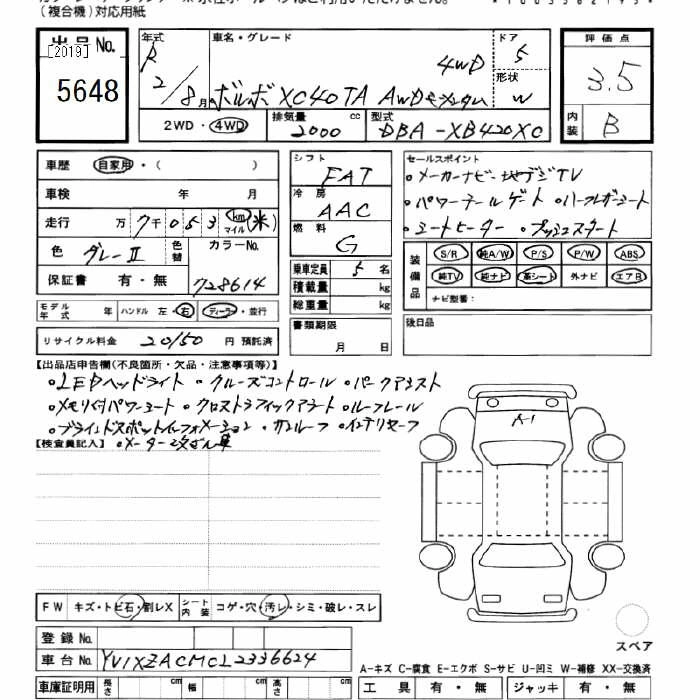 (複合機)対応用紙
出品No.
[2019]
5648
年式
R
2/8月
車名・グレード
ボルボ XC40 TA AWD モメンタム
4WD
ドア
5
形状
W
評価点
3.5
内装
B
2WD・4WD
排気量 2000 cc
型式 DBA-XB420XC
車歴 自家用・( )
車検 年 月
走行 万 7千053 km マイル (米)
色 グレーII 色替
カラーNo. 728614
保証書 有・無
モデル年式 年 ハンドル 左・右 ディーラー・並行
リサイクル料金 20150 円 預託済
シフト FAT
冷房 AAC
燃料 G
乗車定員 5 名
積載量 kg
総重量 kg
書類期限
月 日
セールスポイント
・メーカーナビ・地デジTV
・パワーテールゲート ・ハーフレザーシート
・シートヒーター ・プッシュスタート
装備品
S/R 純A/W P/S P/W ABS
純TV 純ナビ 革シート 外ナビ エアB
ナビ型番:
後日品
【出品店申告欄(不良箇所・欠品・注意事項等)】
・LEDヘッドライト ・クルーズコントロール ・パークアシスト
・メモリ付パワーシート ・クロストラフィックアラート ・ルーフレール
・ブラインドスポットインフォメーション ・サンルーフ ・インテリセーフ
【検査員記入】 ・メーター改ざん車
A-1
FW キズ・トビ石・割レX
シート内装 コゲ・穴・汚レ・シミ・破レ・スレ
スペア
登録No.
車台No. YV1XZACMCL2336624
A-キズ C-腐食 E-エクボ S-サビ U-凹ミ W-補修 XX-交換済
車庫証明用 長さ cm 幅 cm 高さ cm
工具 有・無 ジャッキ 有・無